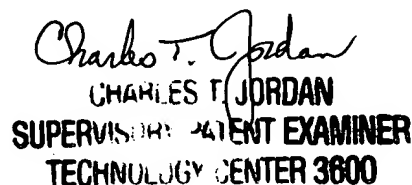 Charles T. Jordan
CHARLES T. JORDAN
SUPERVISORY PATENT EXAMINER
TECHNOLOGY CENTER 3600